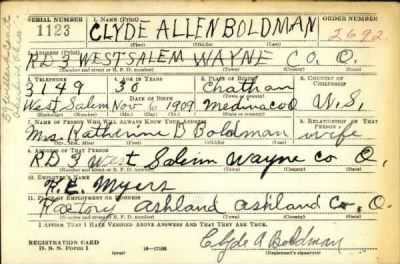 SERIAL NUMBER 1. NAME (Print) ORDER NUMBER
1123 CLYDE ALLEN BOLDMAN 2692
(First) (Middle) (Last)
2. ADDRESS (Print)
RD 3 WEST SALEM WAYNE CO. O.
(Number and street or R. F. D. number) (Town) (County) (State)
3. TELEPHONE 4. AGE IN YEARS 5. PLACE OF BIRTH 6. COUNTRY OF CITIZENSHIP
3149 30 Chatham
DATE OF BIRTH
West Salem Nov 6 1909 Medina Co O U.S.
7. NAME OF PERSON WHO WILL ALWAYS KNOW YOUR ADDRESS 8. RELATIONSHIP OF THAT PERSON
Mrs. Katherine B Boldman wife
(Mr., Mrs., Miss) (First) (Middle) (Last)
9. ADDRESS OF THAT PERSON
RD 3 West Salem Wayne Co O.
(Number and street or R. F. D. number) (Town) (County) (State)
10. EMPLOYER'S NAME
F. E. Myers
11. PLACE OF EMPLOYMENT OR BUSINESS
Factory Ashland Ashland Co, O.
(Number and street or R. F. D. number) (Town) (County) (State)
I AFFIRM THAT I HAVE VERIFIED ABOVE ANSWERS AND THAT THEY ARE TRUE.
REGISTRATION CARD
D. S. S. Form 1 16—17105 Clyde A Boldman
(over) (Registrant's signature)